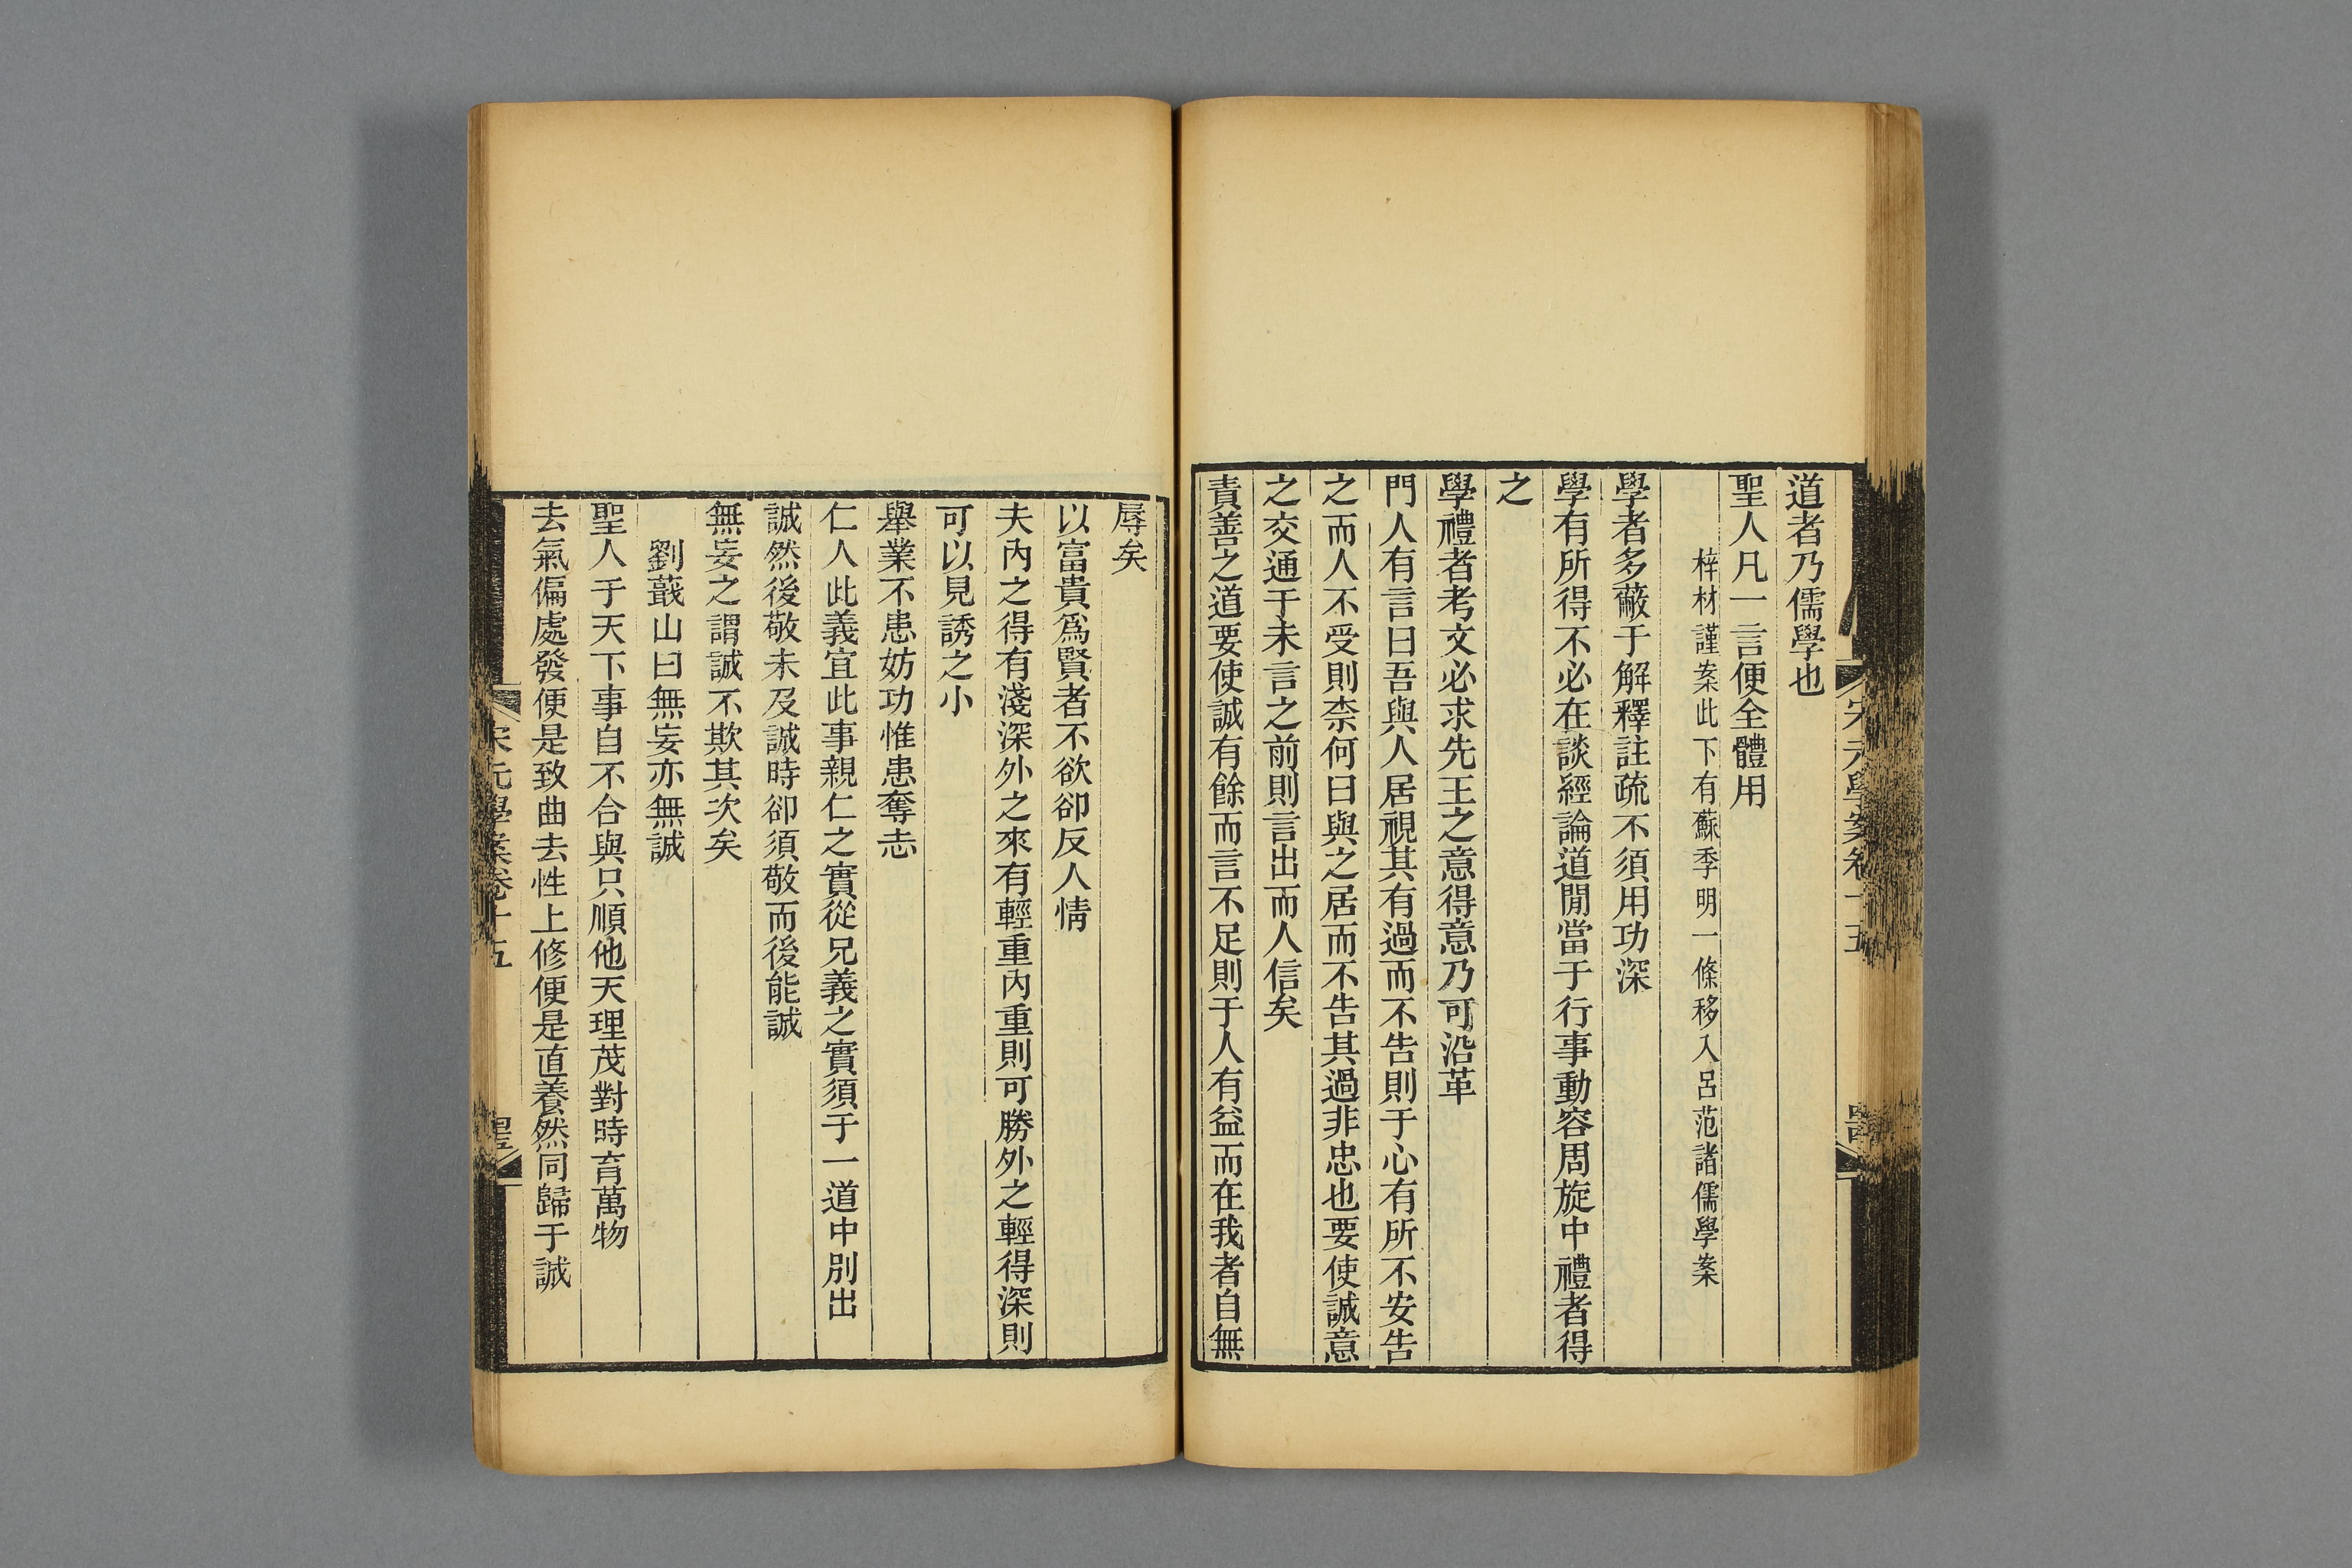 道者乃儒學也
聖人凡一言便全體用
梓材謹案此下有蘇季明一條移入呂范諸儒學案
學者多蔽于解釋註疏不須用功深
學有所得不必在談經論道閒當于行事動容周旋中禮者得
之
學禮者考文必求先王之意得意乃可沿革
門人有言曰吾與人居視其有過而不告則于心有所不安告
之而人不受則柰何曰與之居而不告其過非忠也要使誠意
之交通于未言之前則言出而人信矣
責善之道要使誠有餘而言不足則于人有益而在我者自無
辱矣
以富貴爲賢者不欲卻反人情
夫內之得有淺深外之來有輕重內重則可勝外之輕得深則
可以見誘之小
舉業不患妨功惟患奪志
仁人此義宜此事親仁之實從兄義之實須于一道中別出
誠然後敬未及誠時卻須敬而後能誠
無妄之謂誠不欺其次矣
劉蕺山曰無妄亦無誠
聖人于天下事自不合與只順他天理茂對時育萬物
去氣偏處發便是致曲去性上修便是直養然同歸于誠
宋元學案卷十五
宋元學案卷十五